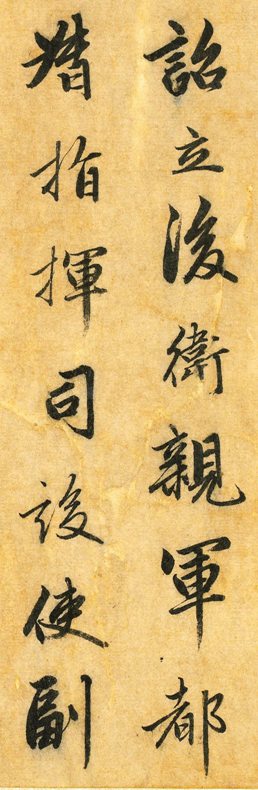 詔立後衛親軍都
㨗指揮司設使副